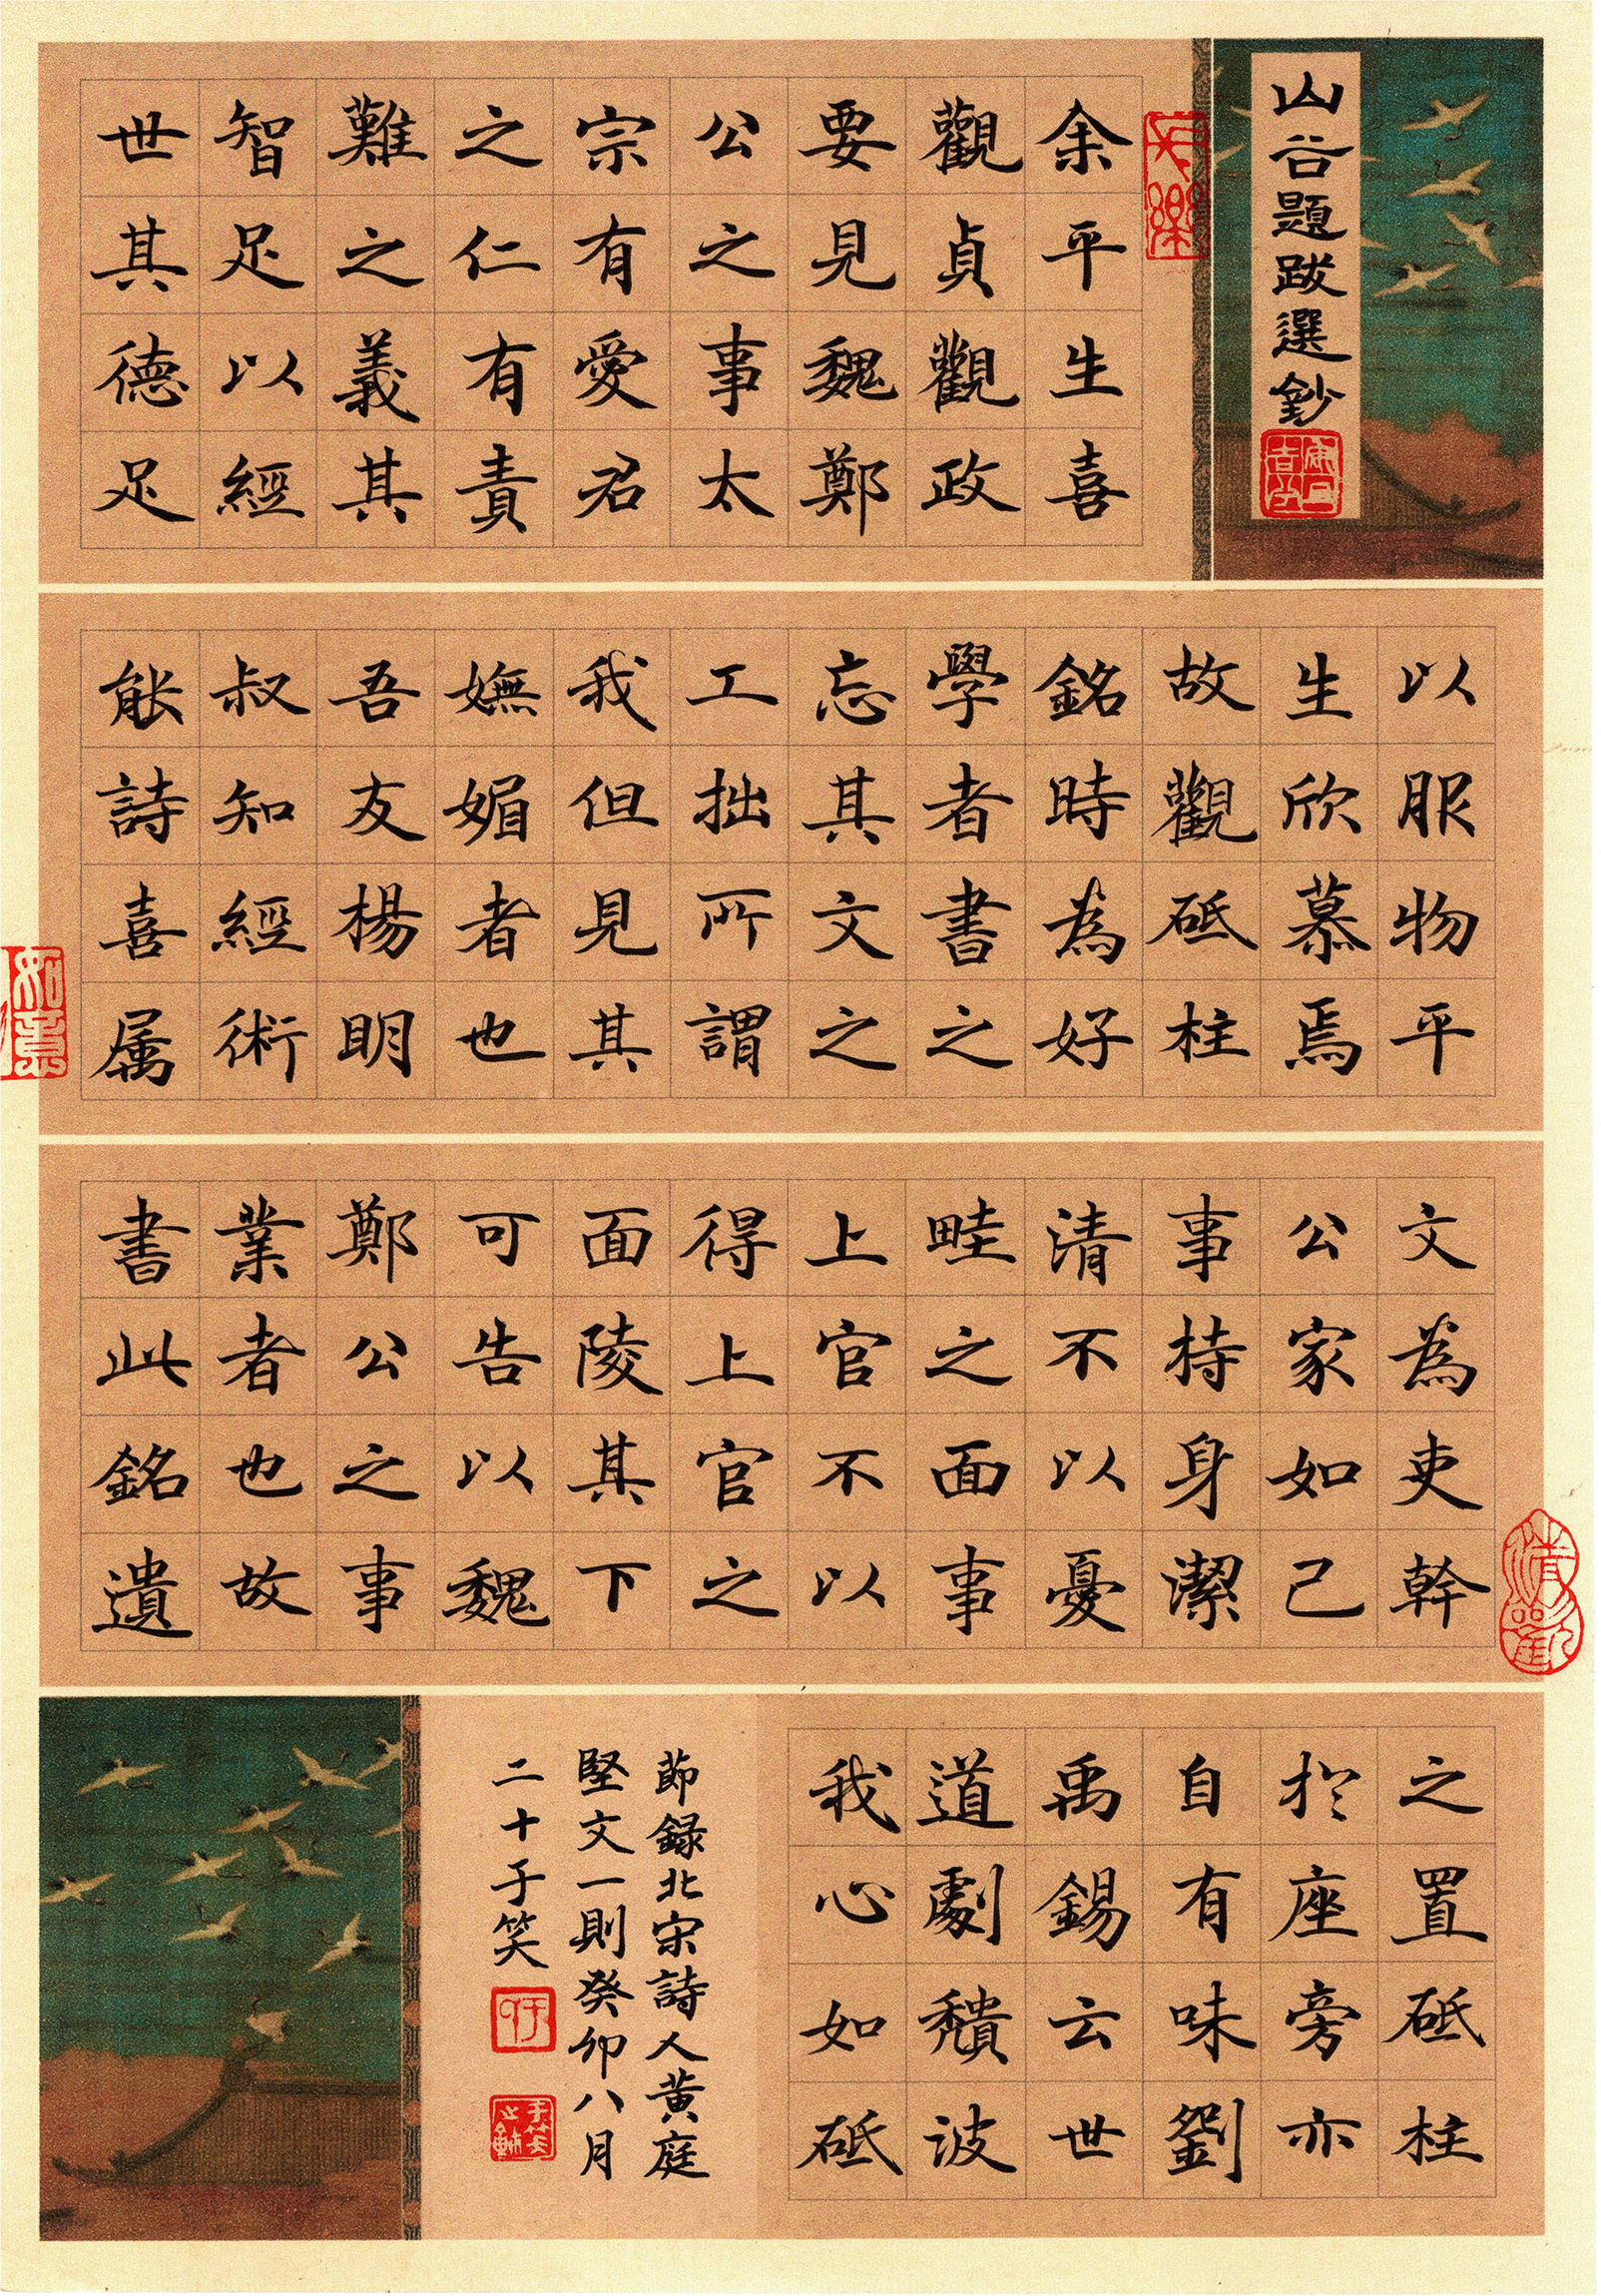 山谷題跋選鈔
余平生喜
觀貞觀政
要見魏鄭
公之事太
宗有愛君
之仁有責
難之義其
智足以經
世其德足
以服物平
生欣慕焉
故觀砥柱
銘時為好
學者書之
忘其文之
工拙所謂
我但見其
嫵媚者也
吾友楊明
叔知經術
能詩喜属
文為吏幹
公家如己
事持身潔
清不以憂
畦之面事
上官不以
得上官之
面陵其下
可告以魏
鄭公之事
業者也故
書此銘遺
之置砥柱
於座旁亦
自有味劉
禹錫云世
道劇穨波
我心如砥
節録北宋詩人黄庭
堅文一則癸卯八月
二十于笑